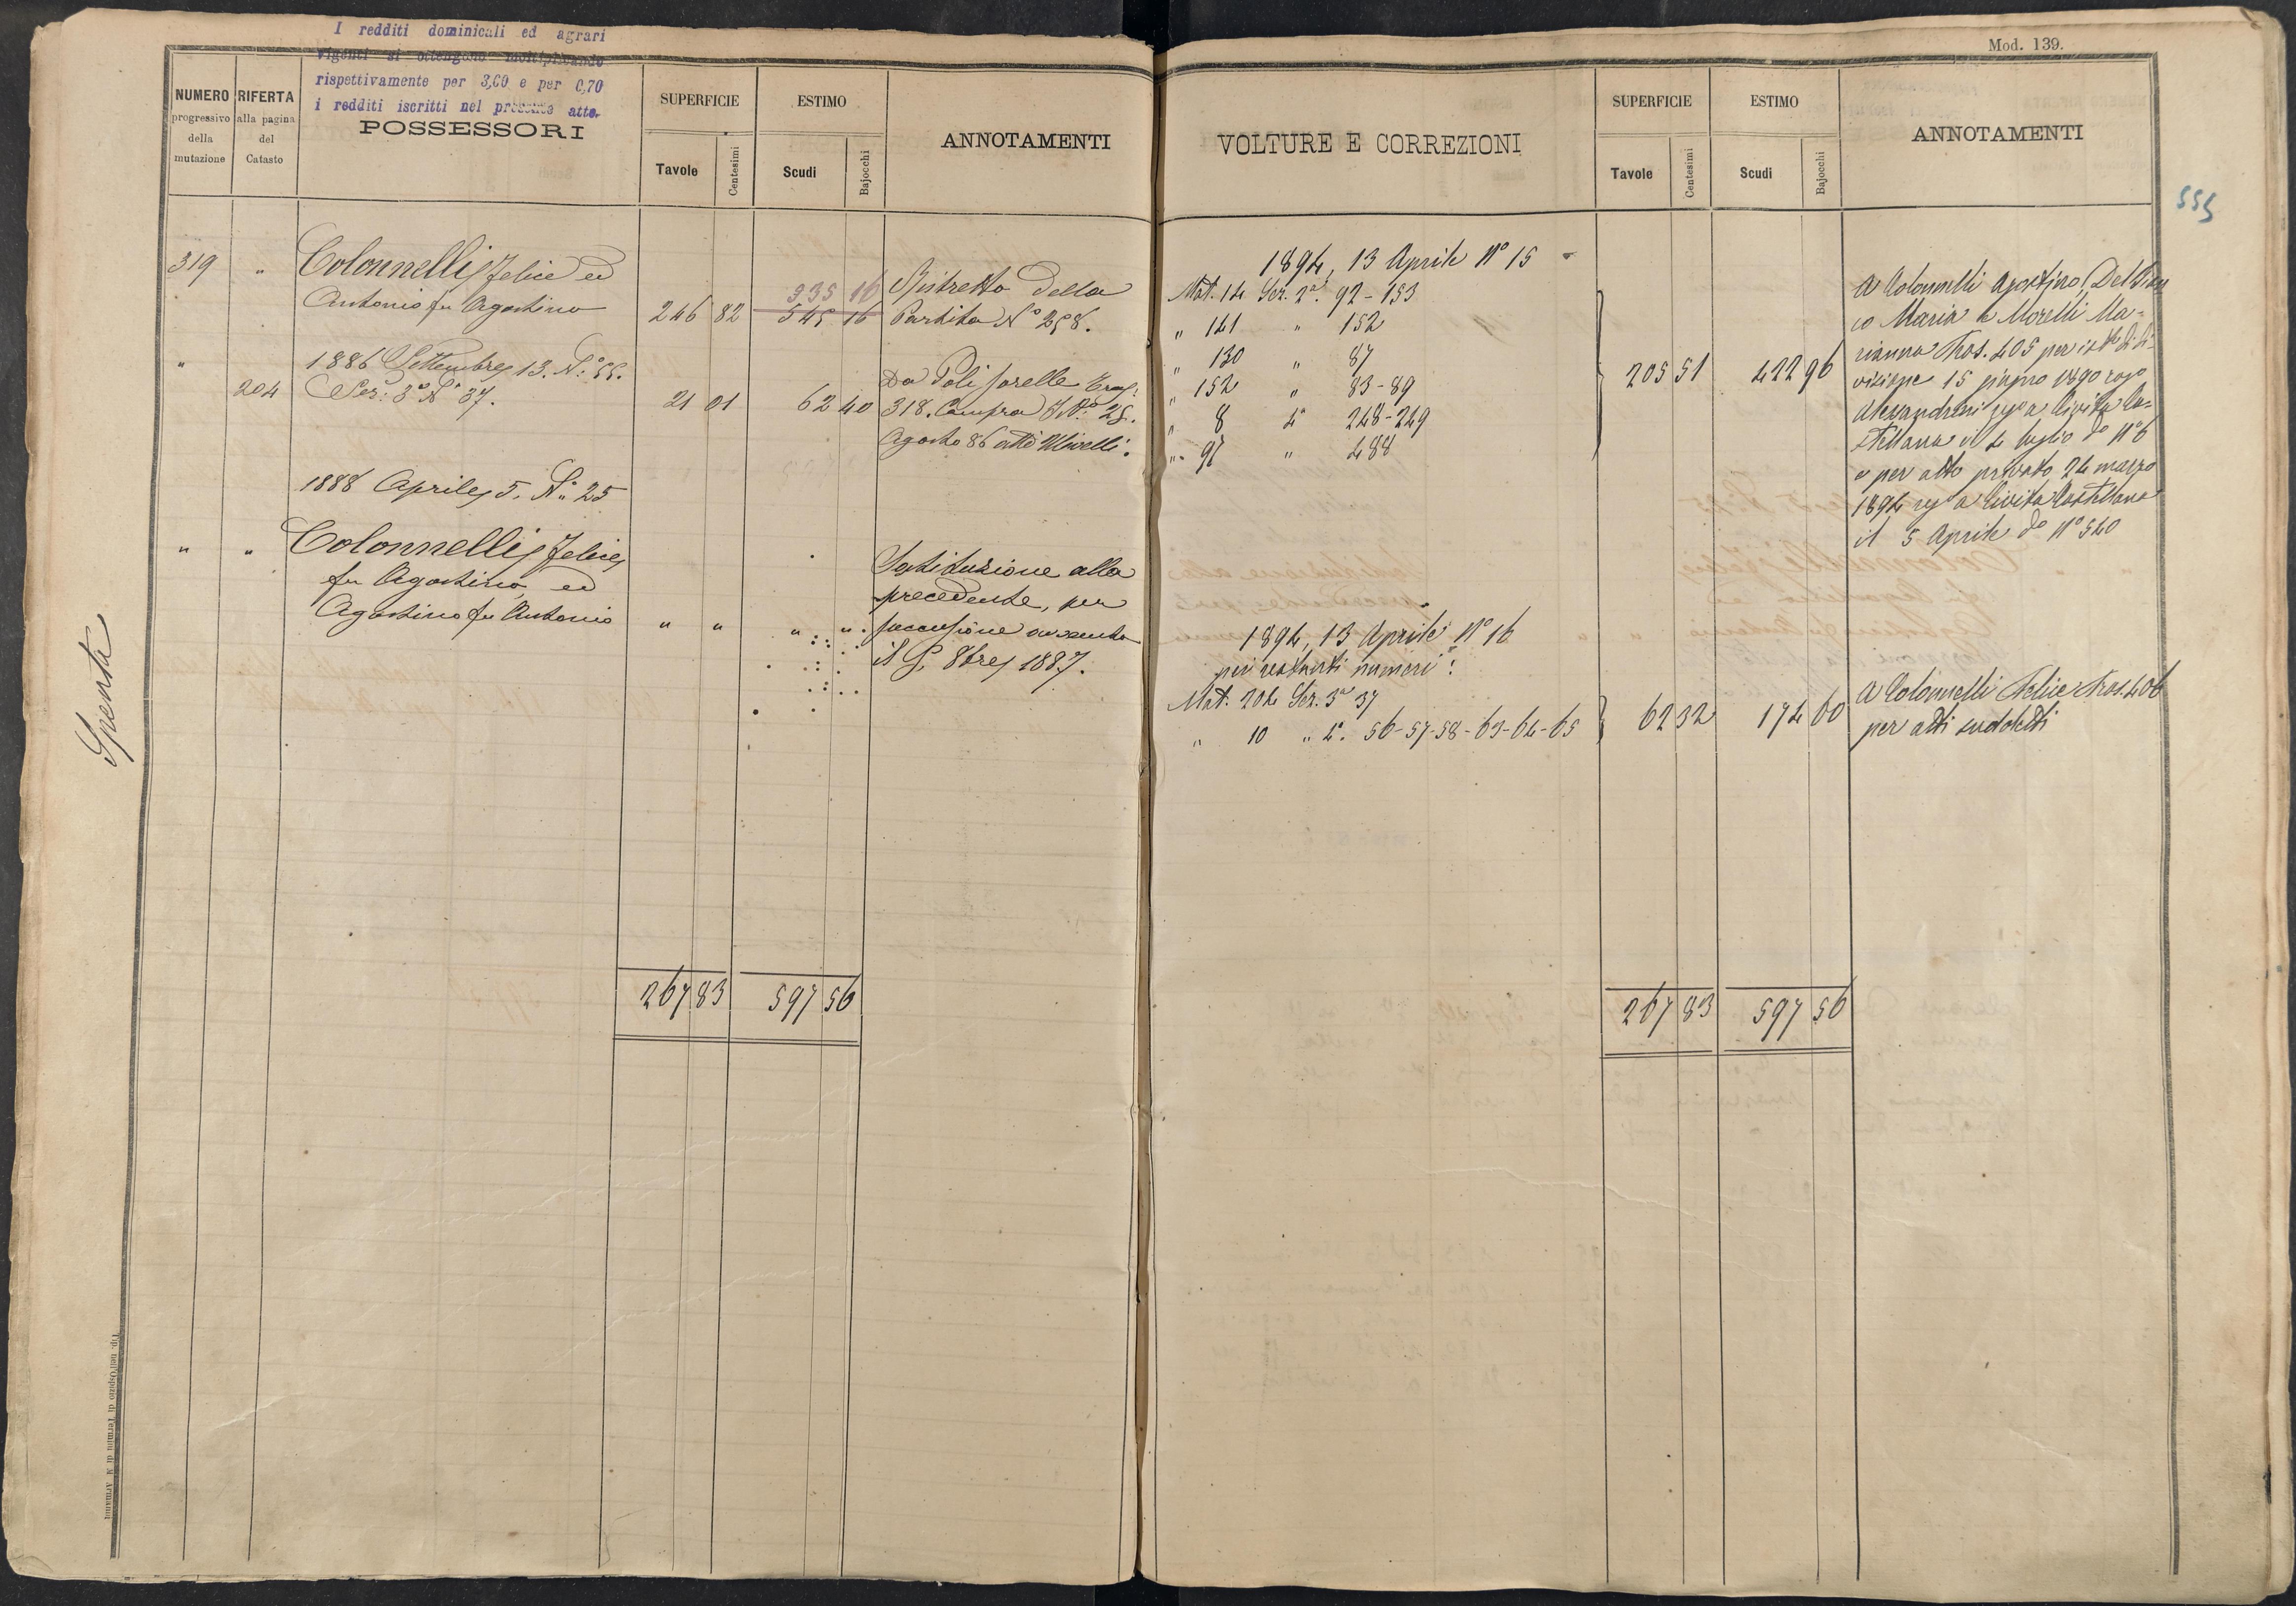 I redditi dominicali ed agrari
vigenti si ottengono moltiplicando
rispettivamente per 3,60 e per 0,70
i redditi iscritti nel presente atto.
NUMERO progressivo della mutazione
RIFERTA alla pagina del Catasto
POSSESSORI
SUPERFICIE
Tavole
Centesimi
ESTIMO
Scudi
Bajocchi
ANNOTAMENTI
319 " Colonnelli Felice ed
Antonio fu Agostino 246 82 535 16 545 16
Ristretto della
Partita N° 258.
" 1886 Settembre 13. N° 55.
204 Sez: 3ª N° 37. 21 01 62 40
Da Poli sorelle
318. Compra 25.
Agosto 86 atti
1888 Aprile 5. N° 25
" " Colonnelli Felice
fu Agostino, ed
Agostino fu Antonio " " " "
Sostituzione alla
precedente, per
successione avvenuta
il 8bre 1887.
267 83 597 56
Spenta
Tip. nell'Ospizio di Termini di A. Armanni
Mod. 139.
VOLTURE E CORREZIONI
SUPERFICIE
Tavole
Centesimi
ESTIMO
Scudi
Bajocchi
ANNOTAMENTI
555
1894, 13 Aprile N° 15
Mat. 14 Sez. 2ª 92 - 153
" 141 " 152
" 130 " 87
" 152 " 83 - 89
" 8 4ª 248 - 249
" 97 " 488
205 51 422 96
A Colonnelli Agostino, Del
co Maria e Morelli Ma=
rianna Tras. 405 per di di=
visione 15 giugno 1890 rogo
Alessandrini a Civita Ca=
stellana il 4 luglio do N° 6
e per atto privato 24 marzo
1894 reg a Civita Castellana
il 5 Aprile do N° 540
1894, 13 Aprile N° 16
pei restanti numeri:
Mat. 204 Sez. 3ª 37
" 10 " 4ª 56-57-58-63-64-65
62 32 174 60
A Colonnelli Felice Tras. 406
per atti suddetti
267 83 597 56